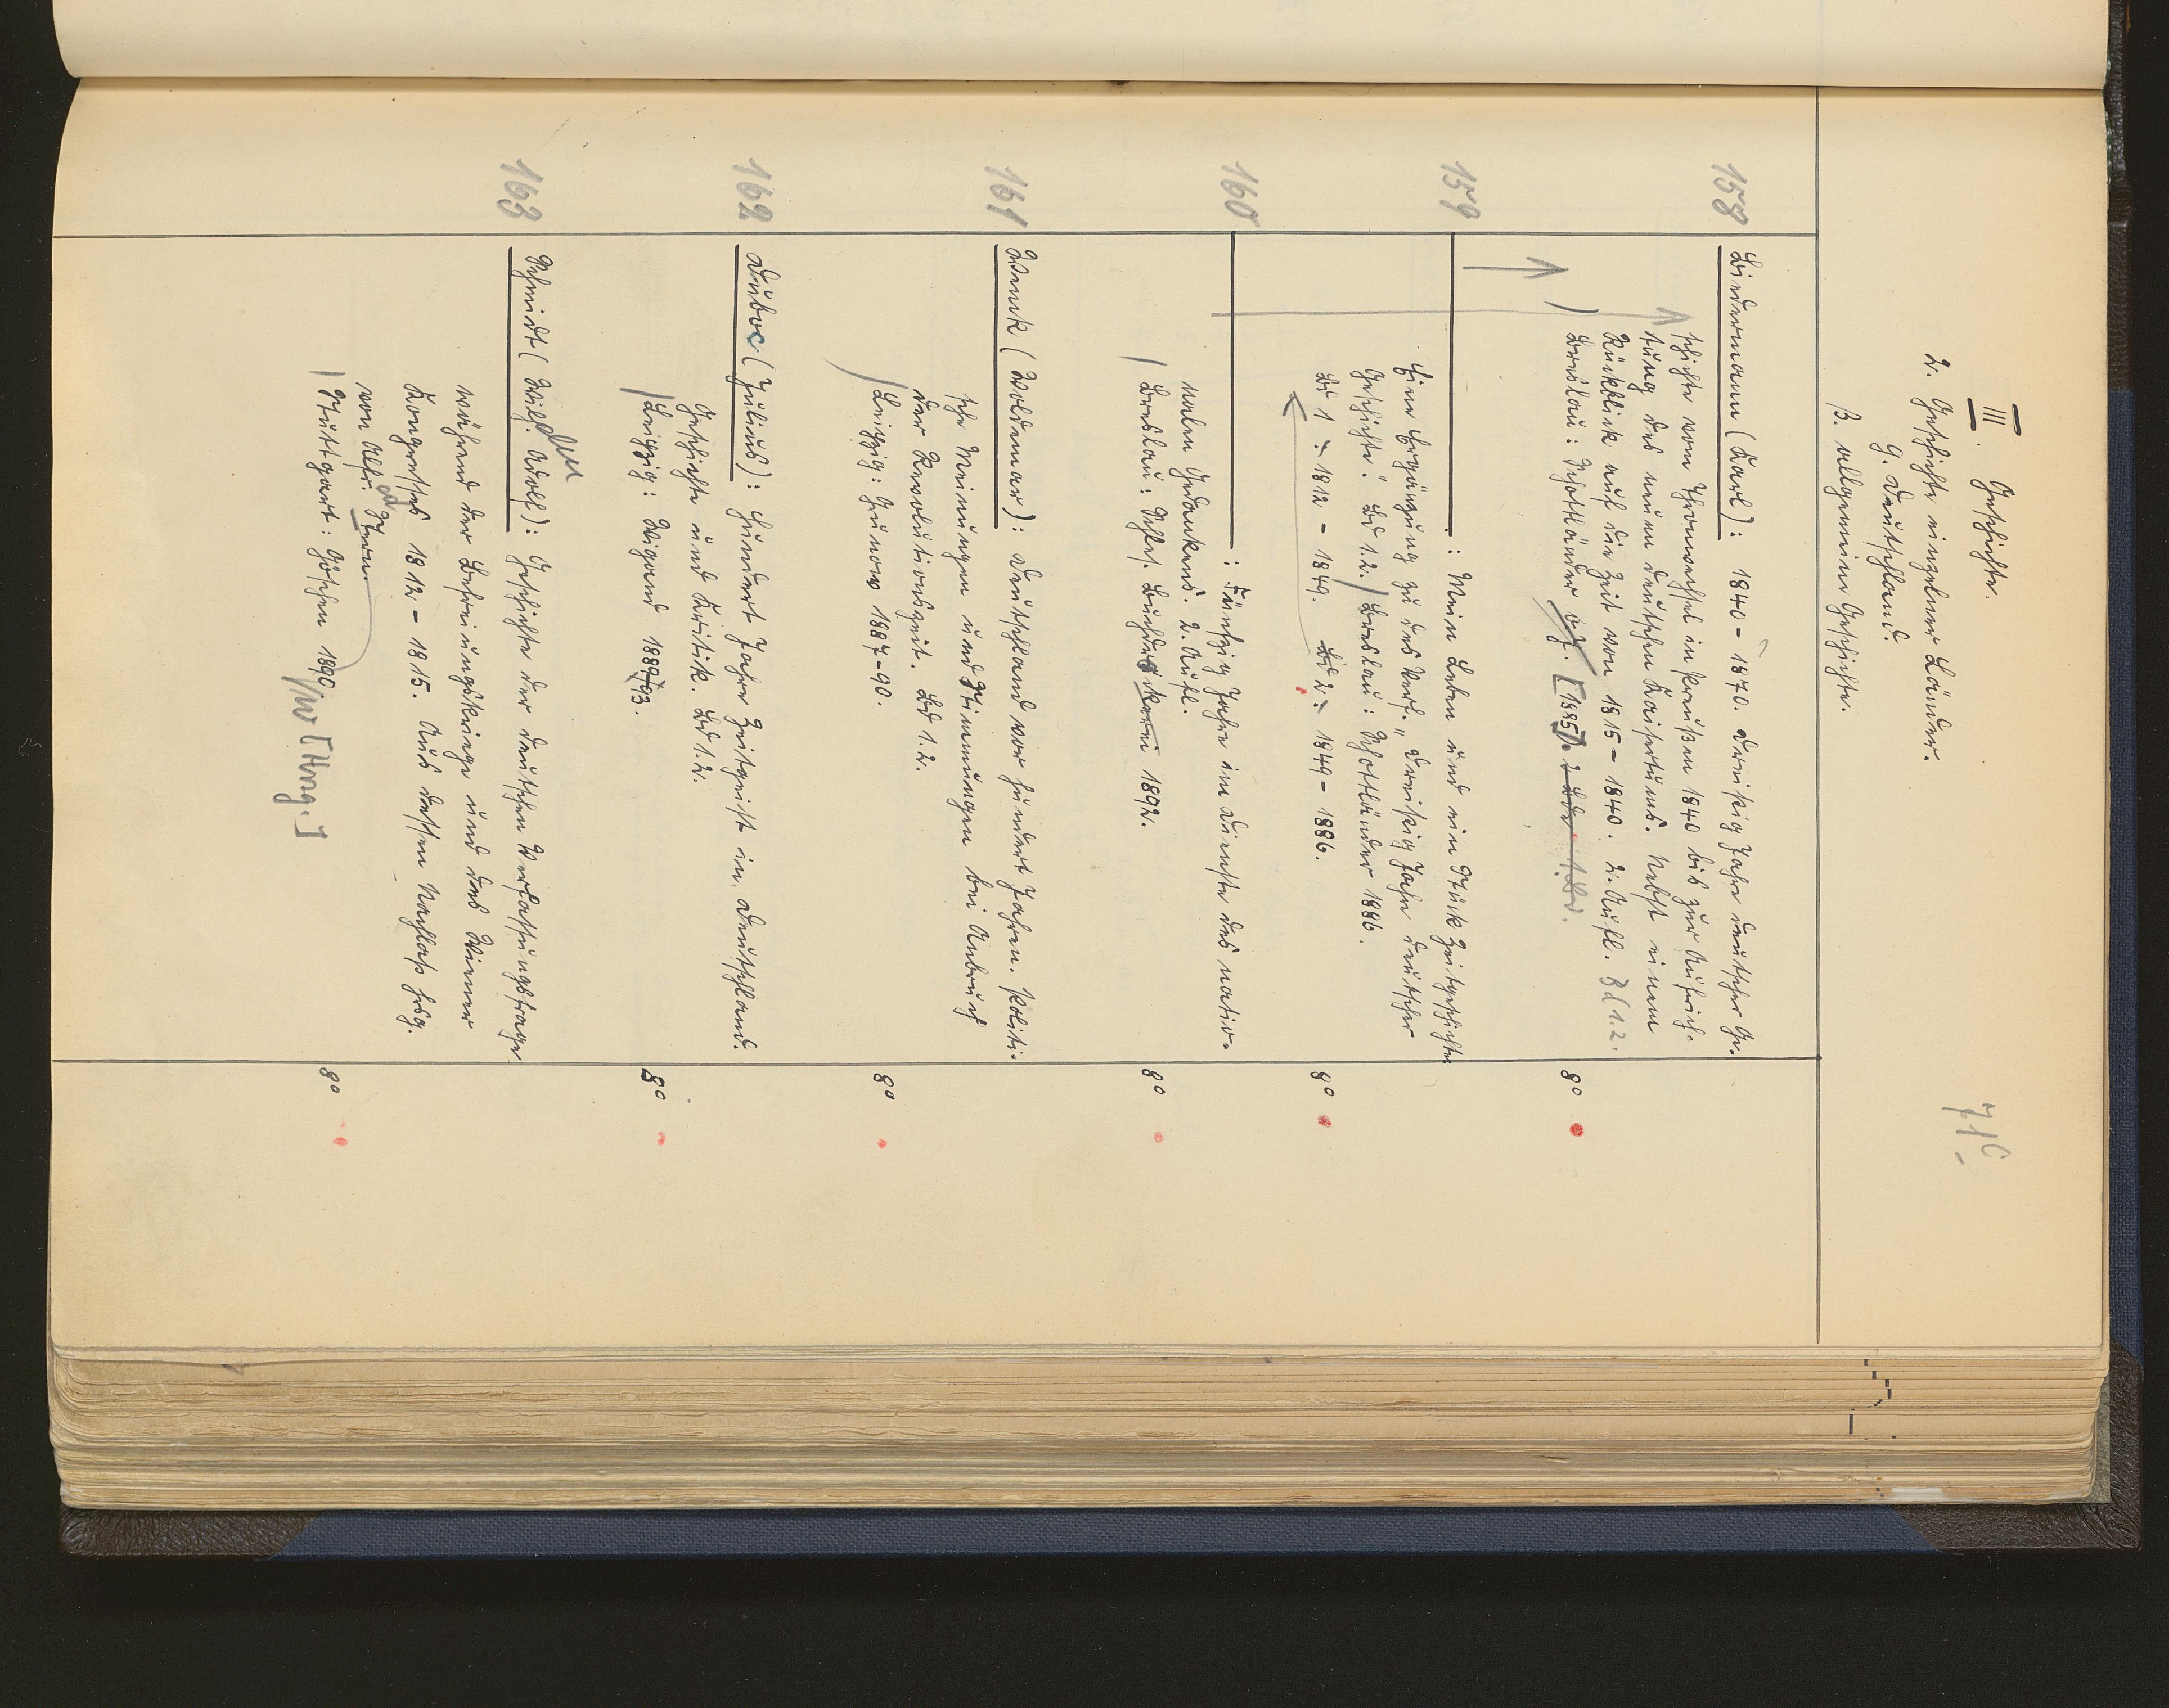 III. Geschichte.
71c
2. Geschichte einzelner Länder.
G. Deutschland.
β. Allgemeine Geschichte.
158
Biedermann (Karl): 1840-1870. Dreißig Jahre deutscher Ge-
schichte vom Thronwechsel in Preußen 1840 bis zur Aufrich-
tung des neuen deutschen Kaisertums. Nebst einem
Rückblick auf die Zeit von 1815-1840. 2. Aufl. Bd 1.2.
Breslau: Schottländer o.J. [1885]. 2 Bde 1. Bd.
8°
159
: Mein Leben und ein Stück Zeitgeschichte.
Eine Ergänzung zu des Verf. „Dreißig Jahre deutscher
Geschichte." Bd 1.2. / Breslau: Schottländer 1886.
Bd 1: 1812-1849. Bd 2: 1849-1886.
8°
160
: Fünfzig Jahre im Dienste des natio-
nalen Gedankens. 2. Aufl.
/ Breslau: Schles. Buchdruckerei 1892.
8°
161
Wenck (Woldemar): Deutschland vor hundert Jahren. Politi-
sche Meinungen und Stimmungen bei Anbruch
der Revolutionszeit. Bd 1.2.
/ Leipzig: Grunow 1887-90.
8°
162
Duboc (Julius): Hundert Jahre Zeitgeist in Deutschland.
Geschichte und Kritik. Bd 1.2.
/ Leipzig: Wigand 1889/93.
8°
163
Schmidt (Wilh. Adolf): Geschichte der deutschen Verfassungsfrage
während der Befreiungskriege und des Wiener
Kongresses 1812-1815. Aus dessen Nachlaß hrsg.
von Alfr. Stern.
/ Stuttgart: Göschen 1890.
8°
[Hrsg.]